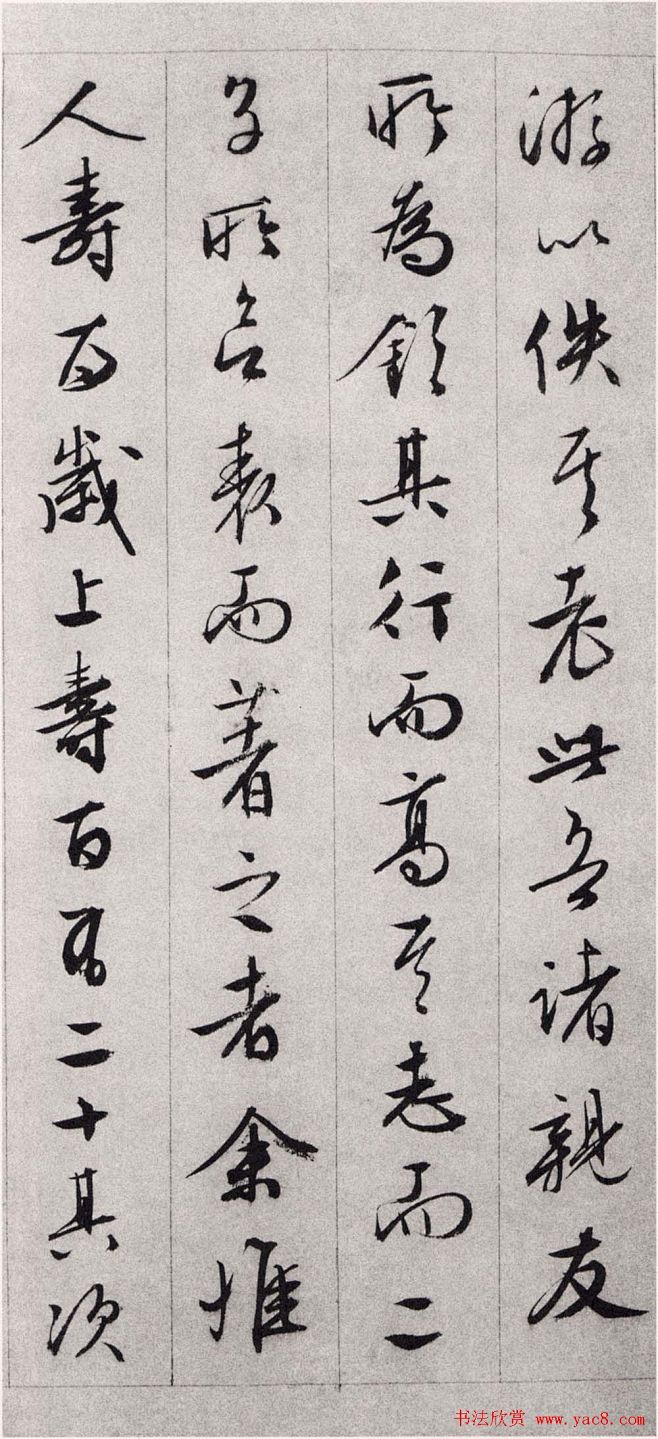 游以佚其老此吾諸親友
所為欽其行而高其志而二
子所表而著之者余惟
人壽百歲上壽百有二十其次
书法欣赏 www.yac8.com